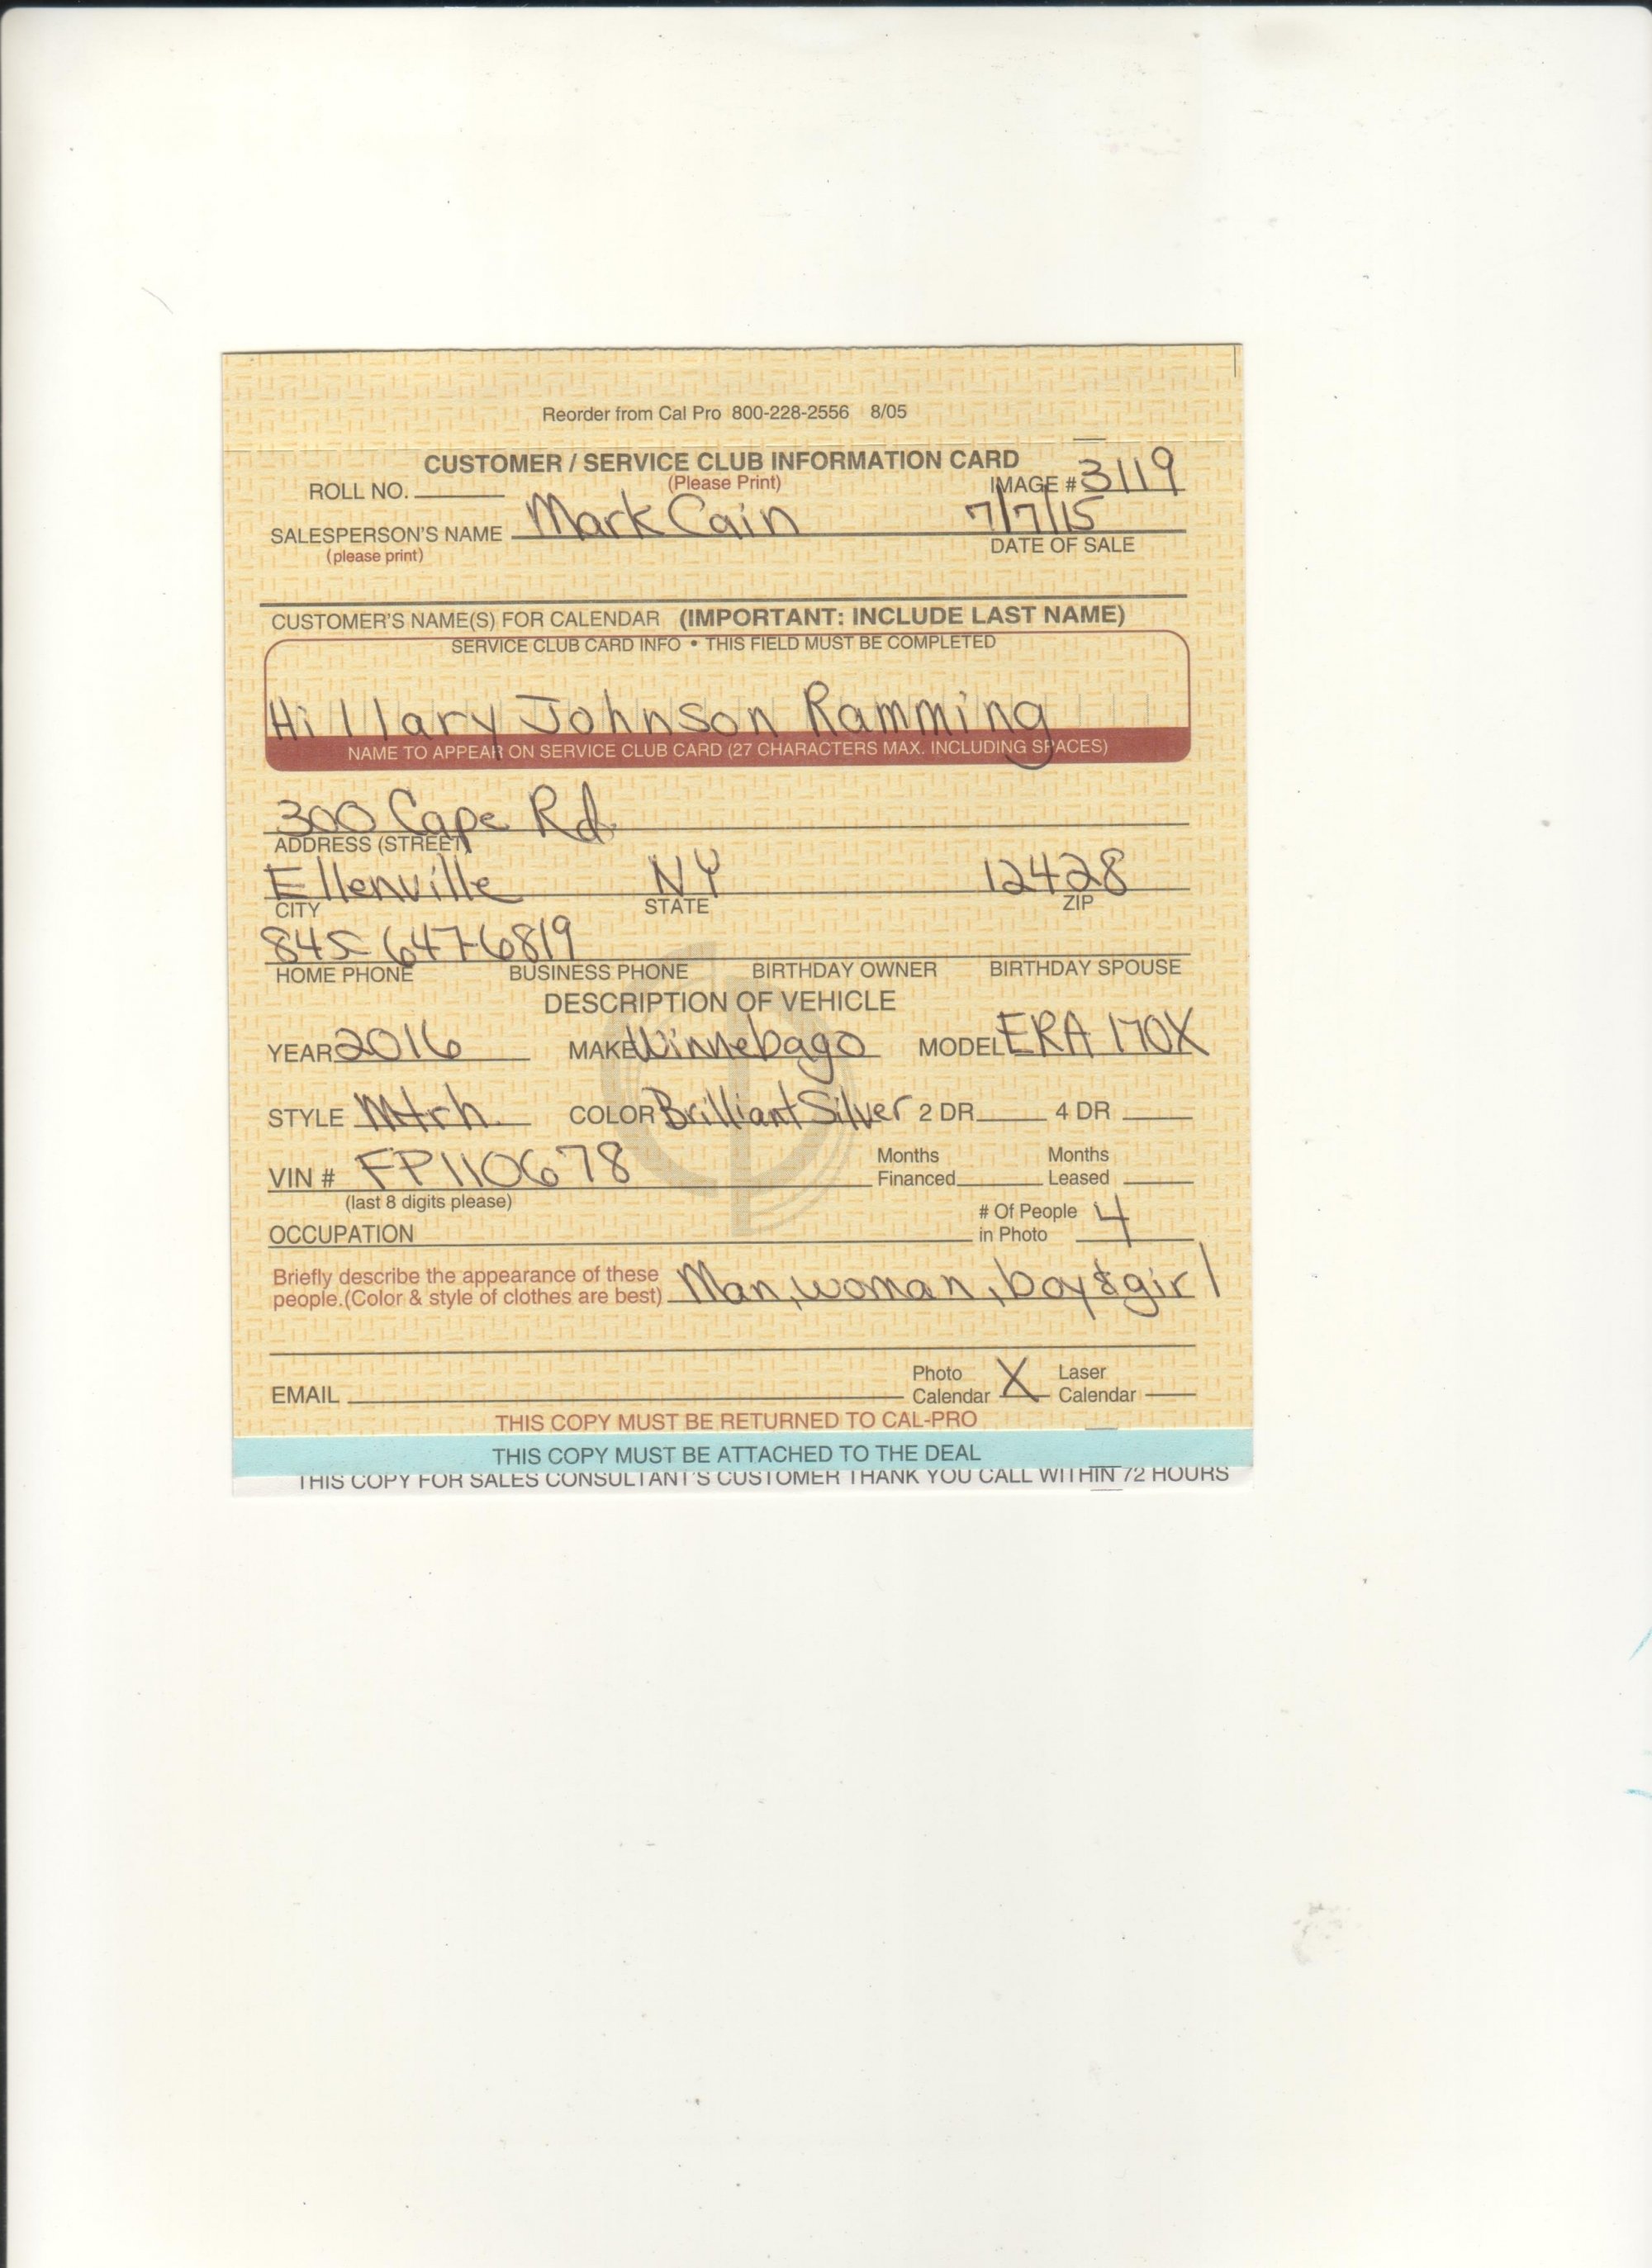 Reorder from Cal Pro 800-228-2556 8/05
CUSTOMER / SERVICE CLUB INFORMATION CARD
(Please Print)
ROLL NO. IMAGE # 3119
SALESPERSON'S NAME Mark Cain 7/7/15
(please print) DATE OF SALE
CUSTOMER'S NAME(S) FOR CALENDAR (IMPORTANT: INCLUDE LAST NAME)
SERVICE CLUB CARD INFO • THIS FIELD MUST BE COMPLETED
Hillary Johnson Ramming
NAME TO APPEAR ON SERVICE CLUB CARD (27 CHARACTERS MAX. INCLUDING SPACES)
300 Cape Rd.
ADDRESS (STREET)
Ellenville NY 12428
CITY STATE ZIP
845-647-6819
HOME PHONE BUSINESS PHONE BIRTHDAY OWNER BIRTHDAY SPOUSE
DESCRIPTION OF VEHICLE
YEAR 2016 MAKE Winnebago MODEL ERA 170X
STYLE Mtrh. COLOR Brilliant Silver 2 DR 4 DR
Months Months
VIN # FP110678 Financed Leased
(last 8 digits please)
# Of People
OCCUPATION in Photo 4
Briefly describe the appearance of these
people.(Color & style of clothes are best) Man, woman, boy & girl
Photo Laser
EMAIL Calendar X Calendar
THIS COPY MUST BE RETURNED TO CAL-PRO
THIS COPY MUST BE ATTACHED TO THE DEAL
THIS COPY FOR SALES CONSULTANT'S CUSTOMER THANK YOU CALL WITHIN 72 HOURS